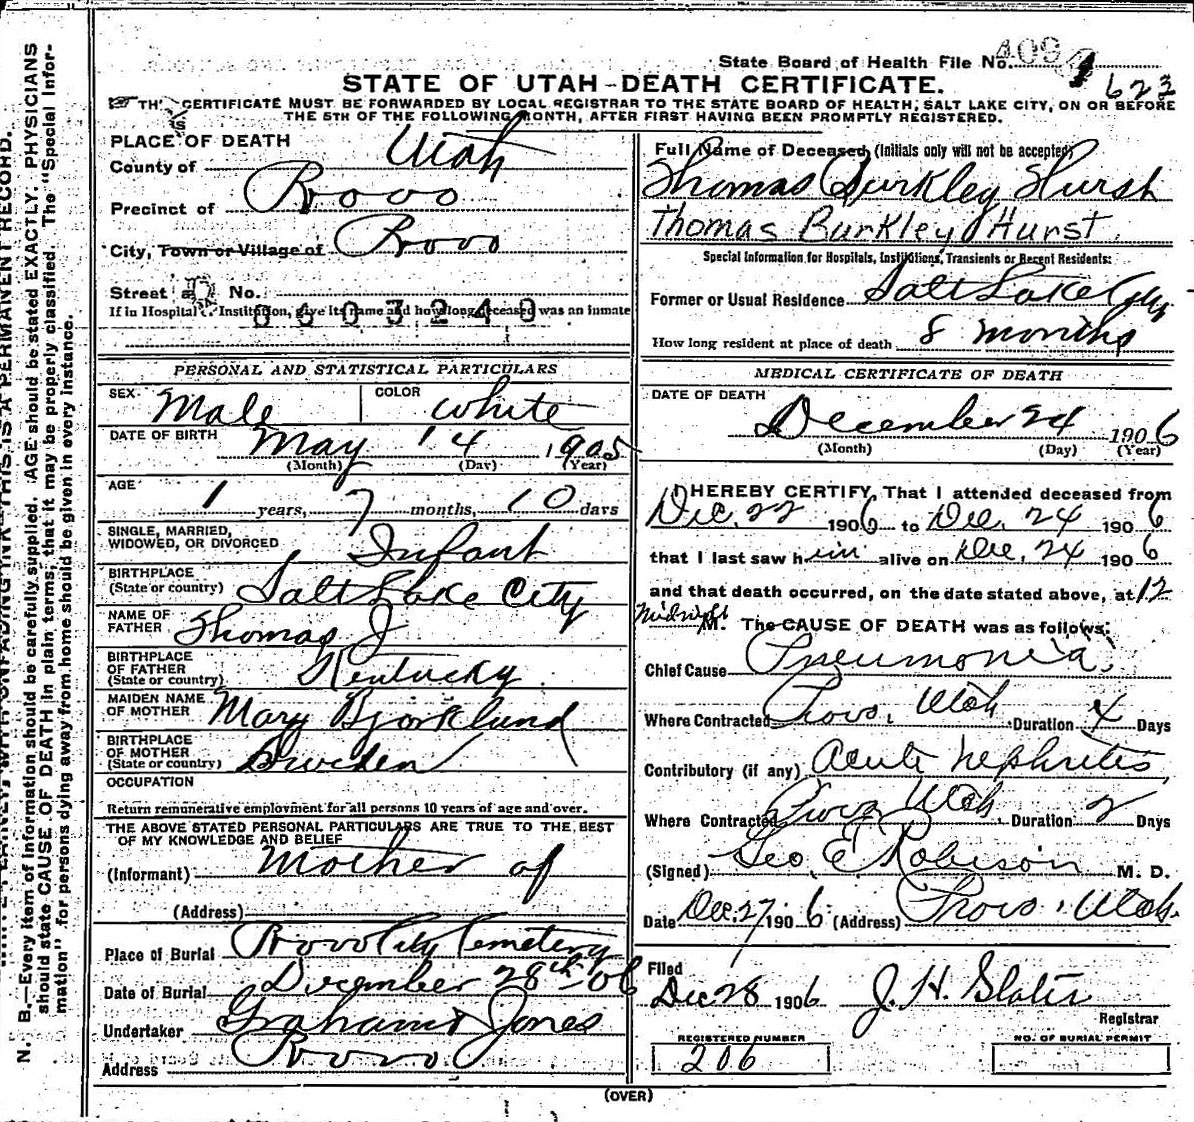 State Board of Health File No. 4094
623
STATE OF UTAH-DEATH CERTIFICATE.
THIS CERTIFICATE MUST BE FORWARDED BY LOCAL REGISTRAR TO THE STATE BOARD OF HEALTH, SALT LAKE CITY, ON OR BEFORE
THE 5TH OF THE FOLLOWING MONTH, AFTER FIRST HAVING BEEN PROMPTLY REGISTERED.
PLACE OF DEATH
County of Utah
Precinct of Provo
City, Town or Village of Provo
Street and No.
If in Hospital or Institution, give its name and how long deceased was an inmate
0603249
PERSONAL AND STATISTICAL PARTICULARS
SEX Male COLOR White
DATE OF BIRTH May 14 1905
(Month) (Day) (Year)
AGE 1 years, 7 months, 10 days
SINGLE, MARRIED,
WIDOWED, OR DIVORCED Infant
BIRTHPLACE
(State or country) Salt Lake City
NAME OF
FATHER Thomas J
BIRTHPLACE
OF FATHER
(State or country) Kentucky
MAIDEN NAME
OF MOTHER Mary Bjorklund
BIRTHPLACE
OF MOTHER
(State or country) Sweden
OCCUPATION
Return remunerative employment for all persons 10 years of age and over.
THE ABOVE STATED PERSONAL PARTICULARS ARE TRUE TO THE BEST
OF MY KNOWLEDGE AND BELIEF
(Informant) Mother of
(Address)
Place of Burial Provo City Cemetery
Date of Burial December 28th 06
Undertaker Graham & Jones
Address Provo
Full Name of Deceased (Initials only will not be accepted)
Thomas Burkley Hurst
Thomas Burkley Hurst
Special Information for Hospitals, Institutions, Transients or Recent Residents:
Former or Usual Residence Salt Lake City
How long resident at place of death 8 months
MEDICAL CERTIFICATE OF DEATH
DATE OF DEATH
December 24 1906
(Month) (Day) (Year)
I HEREBY CERTIFY, That I attended deceased from
Dec. 22 1906 to Dec. 24 1906
that I last saw him alive on Dec. 24 1906
and that death occurred, on the date stated above, at 12
Midnight M. The CAUSE OF DEATH was as follows:
Chief Cause Pneumonia.
Where Contracted Provo, Utah Duration 4 Days
Contributory (if any) Acute Nephritis
Where Contracted Provo Utah Duration 2 Days
(Signed) Geo. E Robison M. D.
Date Dec. 27, 1906 (Address) Provo, Utah.
Filed
Dec 28 1906 J. H. Slater
Registrar
REGISTERED NUMBER
206
NO. OF BURIAL PERMIT
(OVER)
RECORD.
N. B.—Every item of information should be carefully supplied. AGE should be stated EXACTLY. PHYSICIANS
should state CAUSE OF DEATH in plain terms, that it may be properly classified. The "Special Infor-
mation" for persons dying away from home should be given in every instance.